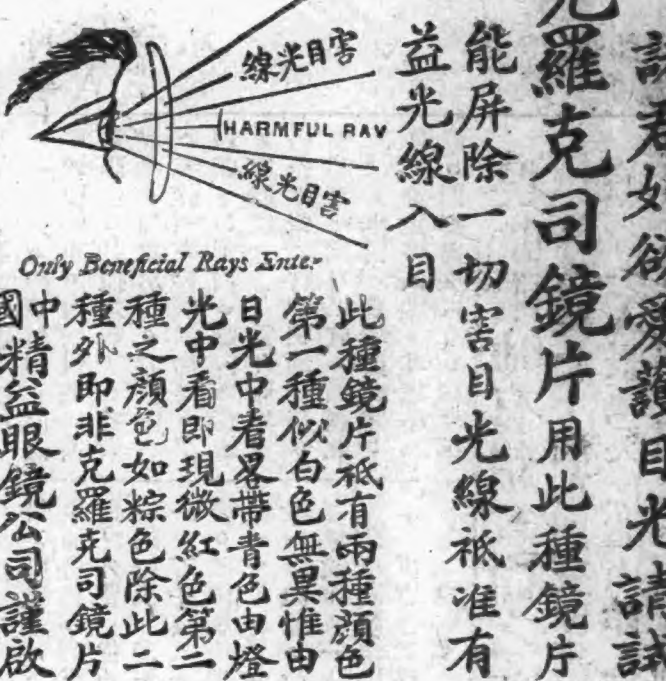 諸君如欲愛護目光請試
克羅克司鏡片用此種鏡片
能屏除一切害目光線祗准有
益光線入目
害目光線
HARMFUL RAY
害目光線
Only Beneficial Rays Enter
此種鏡片祗有兩種顏色
第一種似白色無異惟由
日光中看畧帶青色由燈
光中看即現微紅色第二
種之顏色如粽色除此二
種外即非克羅克司鏡片
中國精益眼鏡公司謹啟